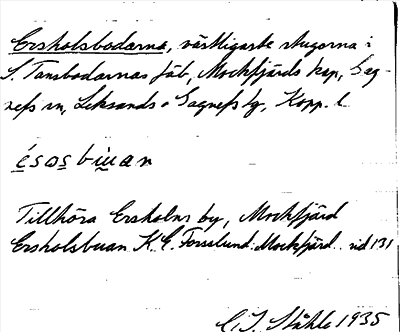 Ersholsbodarna, västligaste stugorna i
S. Tansbodarnas fäb, Mockfjärds kap, Gag-
nefs sn, Leksands o Gagnefs tg, Kopp. l.
Tillhöra Ersholns by, Mockfjärd
Ersholsbuan K. E. Forsslund: Mockfjärd. sid 131
C. I. Ståhle 1935